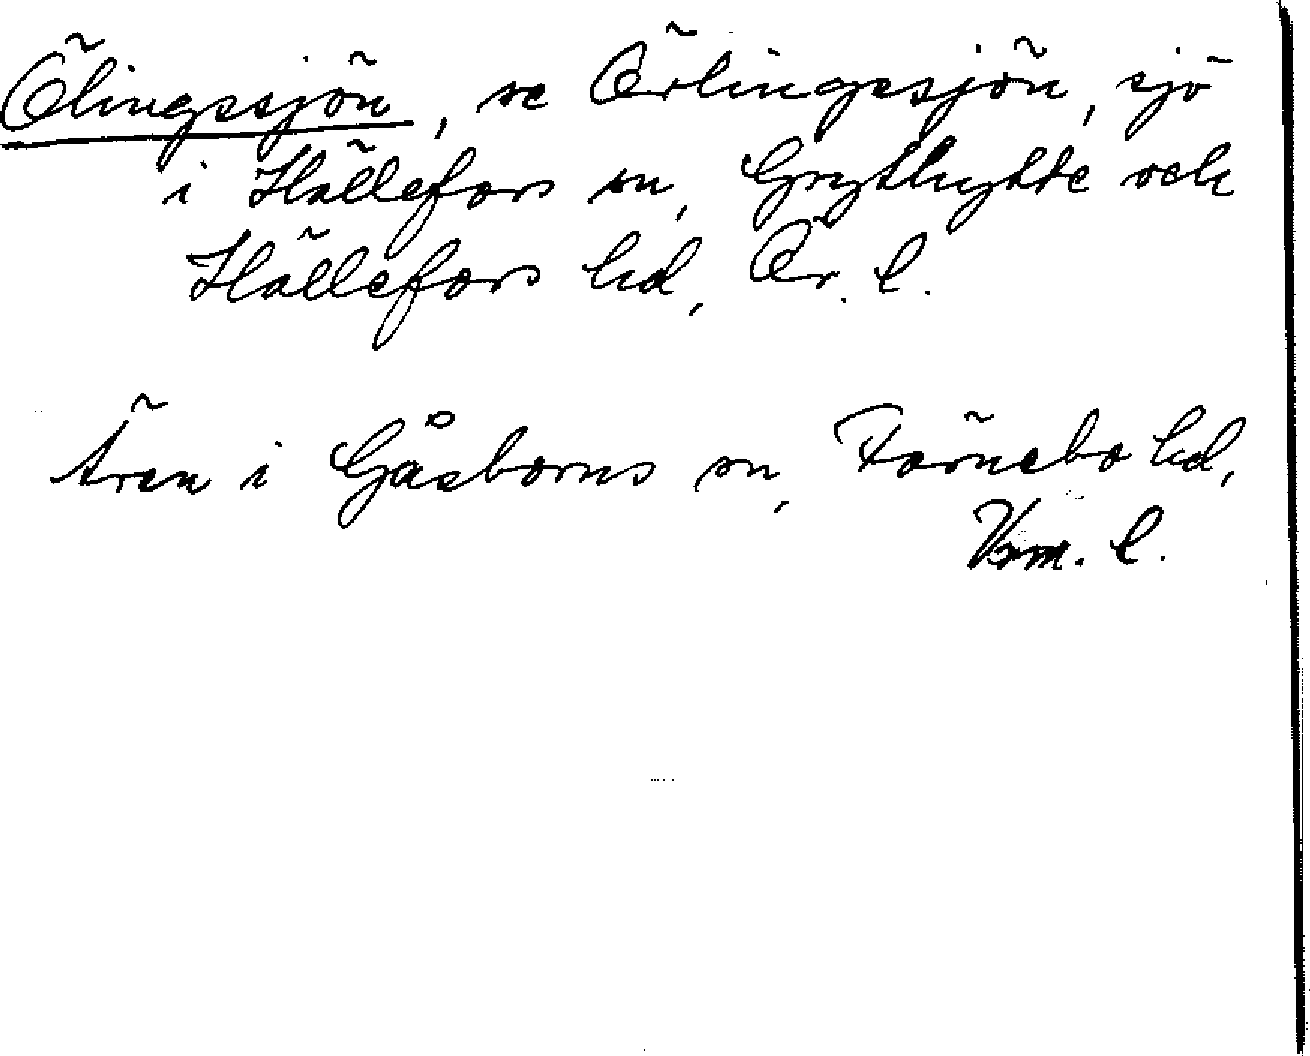 Ölingssjön, se Örlingssjön, sjö
i Hällefors sn, Grythytte och
Hällefors hd, Ör. l.
Ären i Gåsborns sn, Färnebo hd,
Vrm. l.